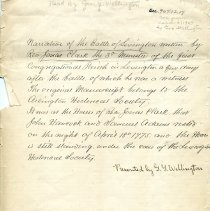 Narration of the battle of Lexington written by
Rev. Jonas Clark the 3d Minister of the first
Congregational Church in Lexington a few days
after the battle of which he was a witness
The original Manuscript belongs to the
Lexington Historical Society.
It was at the House of Rev. Jonas Clark, that
John Hancock and Samuel Adams
on the night of April 18th 1775 and the House
is still standing, under the care of the Lexington
Historical Society.
Presented by G. Y. Wellington